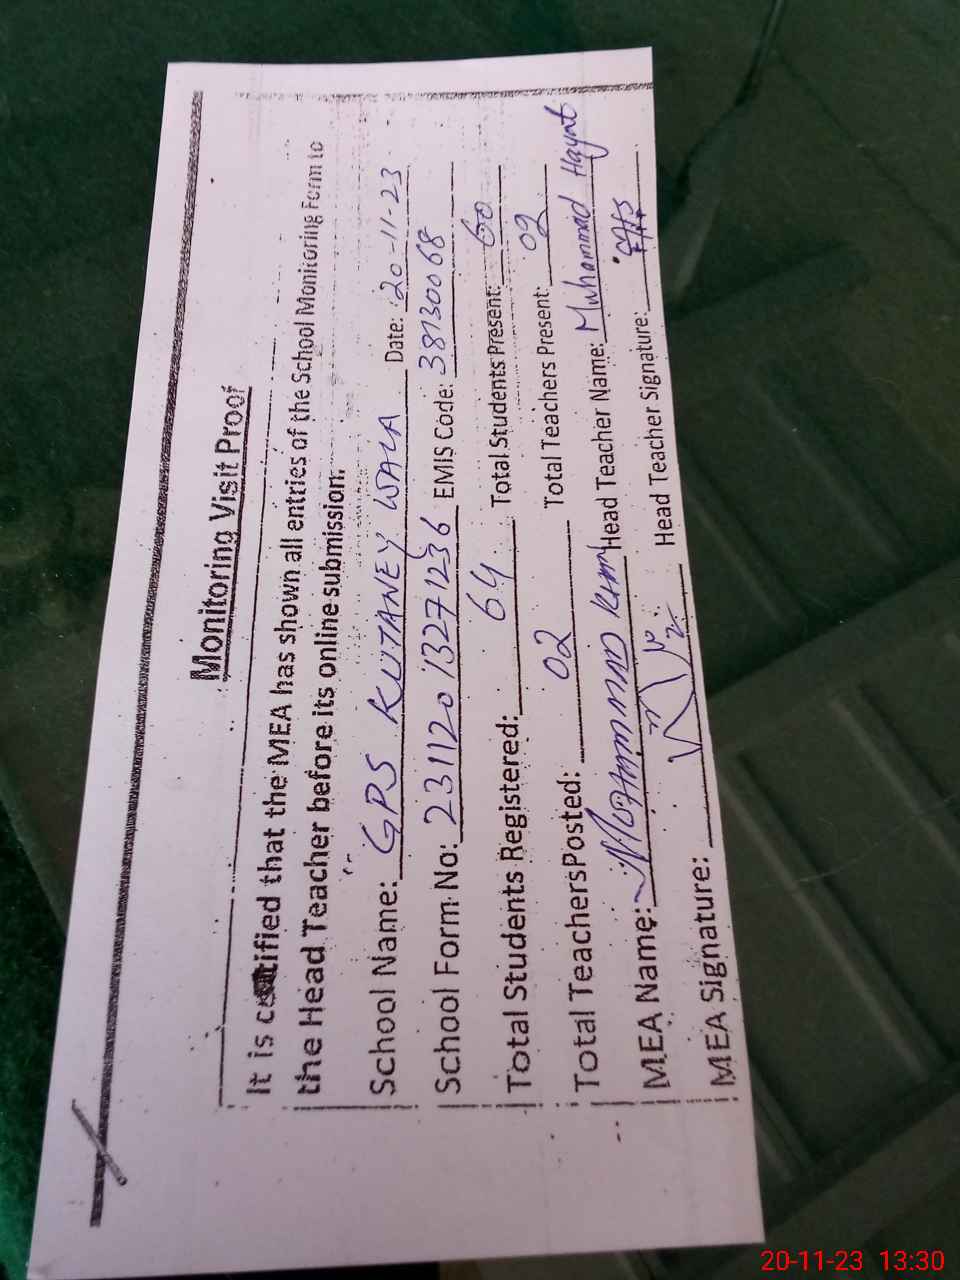 Monitoring Visit Proof
It is certified that the MEA has shown all entries of the School Monitoring Form to
the Head Teacher before its online submission.
School Name: GPS KUTANEY WALA Date: 20-11-23
School Form No: 23112013271236 EMIS Code: 38130068
Total Students Registered: 64 Total Students Present: 60
Total Teachers Posted: 02 Total Teachers Present: 02
MEA Name: Head Teacher Name: Muhammad Hayat
MEA Signature: Head Teacher Signature:
20-11-23 13:30